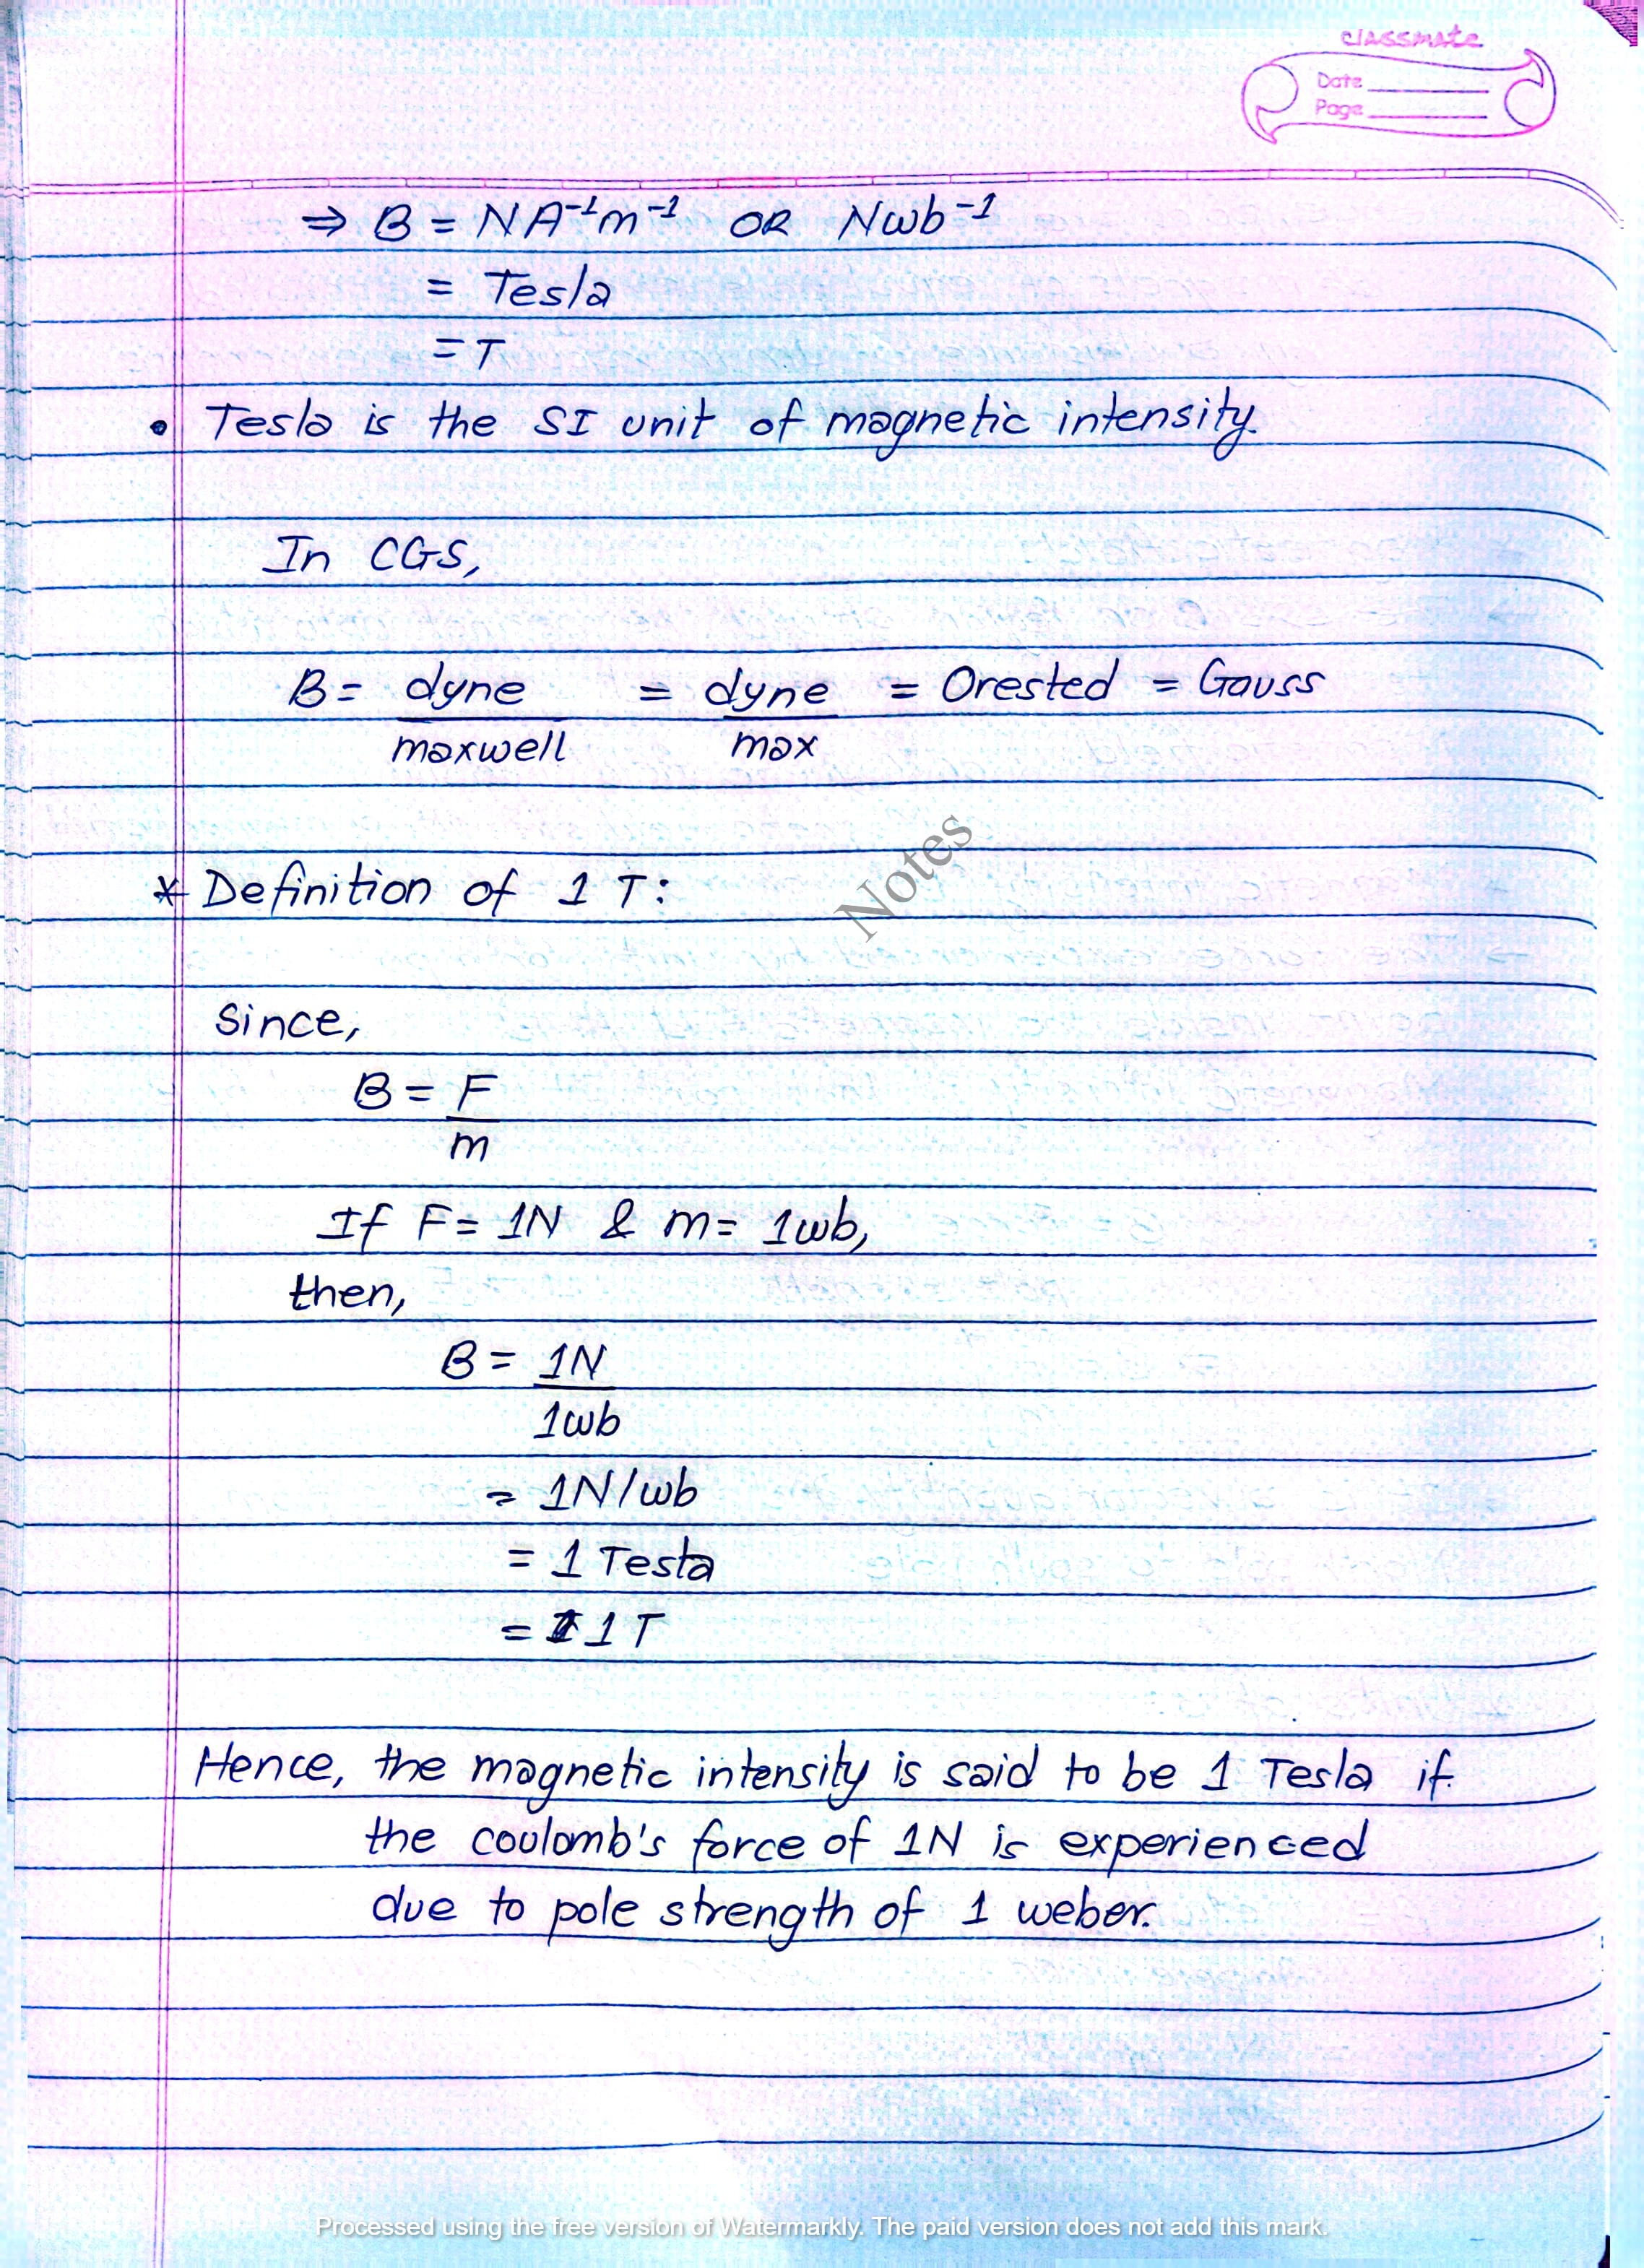 classmate
Date
Page
⇒ B = NA⁻¹m⁻¹ OR Nwb⁻¹
= Tesla
= T
• Tesla is the SI unit of magnetic intensity.
In CGS,
B = dyne/maxwell = dyne/max = Orested = Gauss
Notes
* Definition of 1 T:
Since,
B = F/m
If F = 1N & m = 1wb,
then,
B = 1N/1wb
= 1N/wb
= 1 Tesla
= 1T
Hence, the magnetic intensity is said to be 1 Tesla if
the coulomb's force of 1N is experienced
due to pole strength of 1 weber.
Processed using the free version of Watermarkly. The paid version does not add this mark.